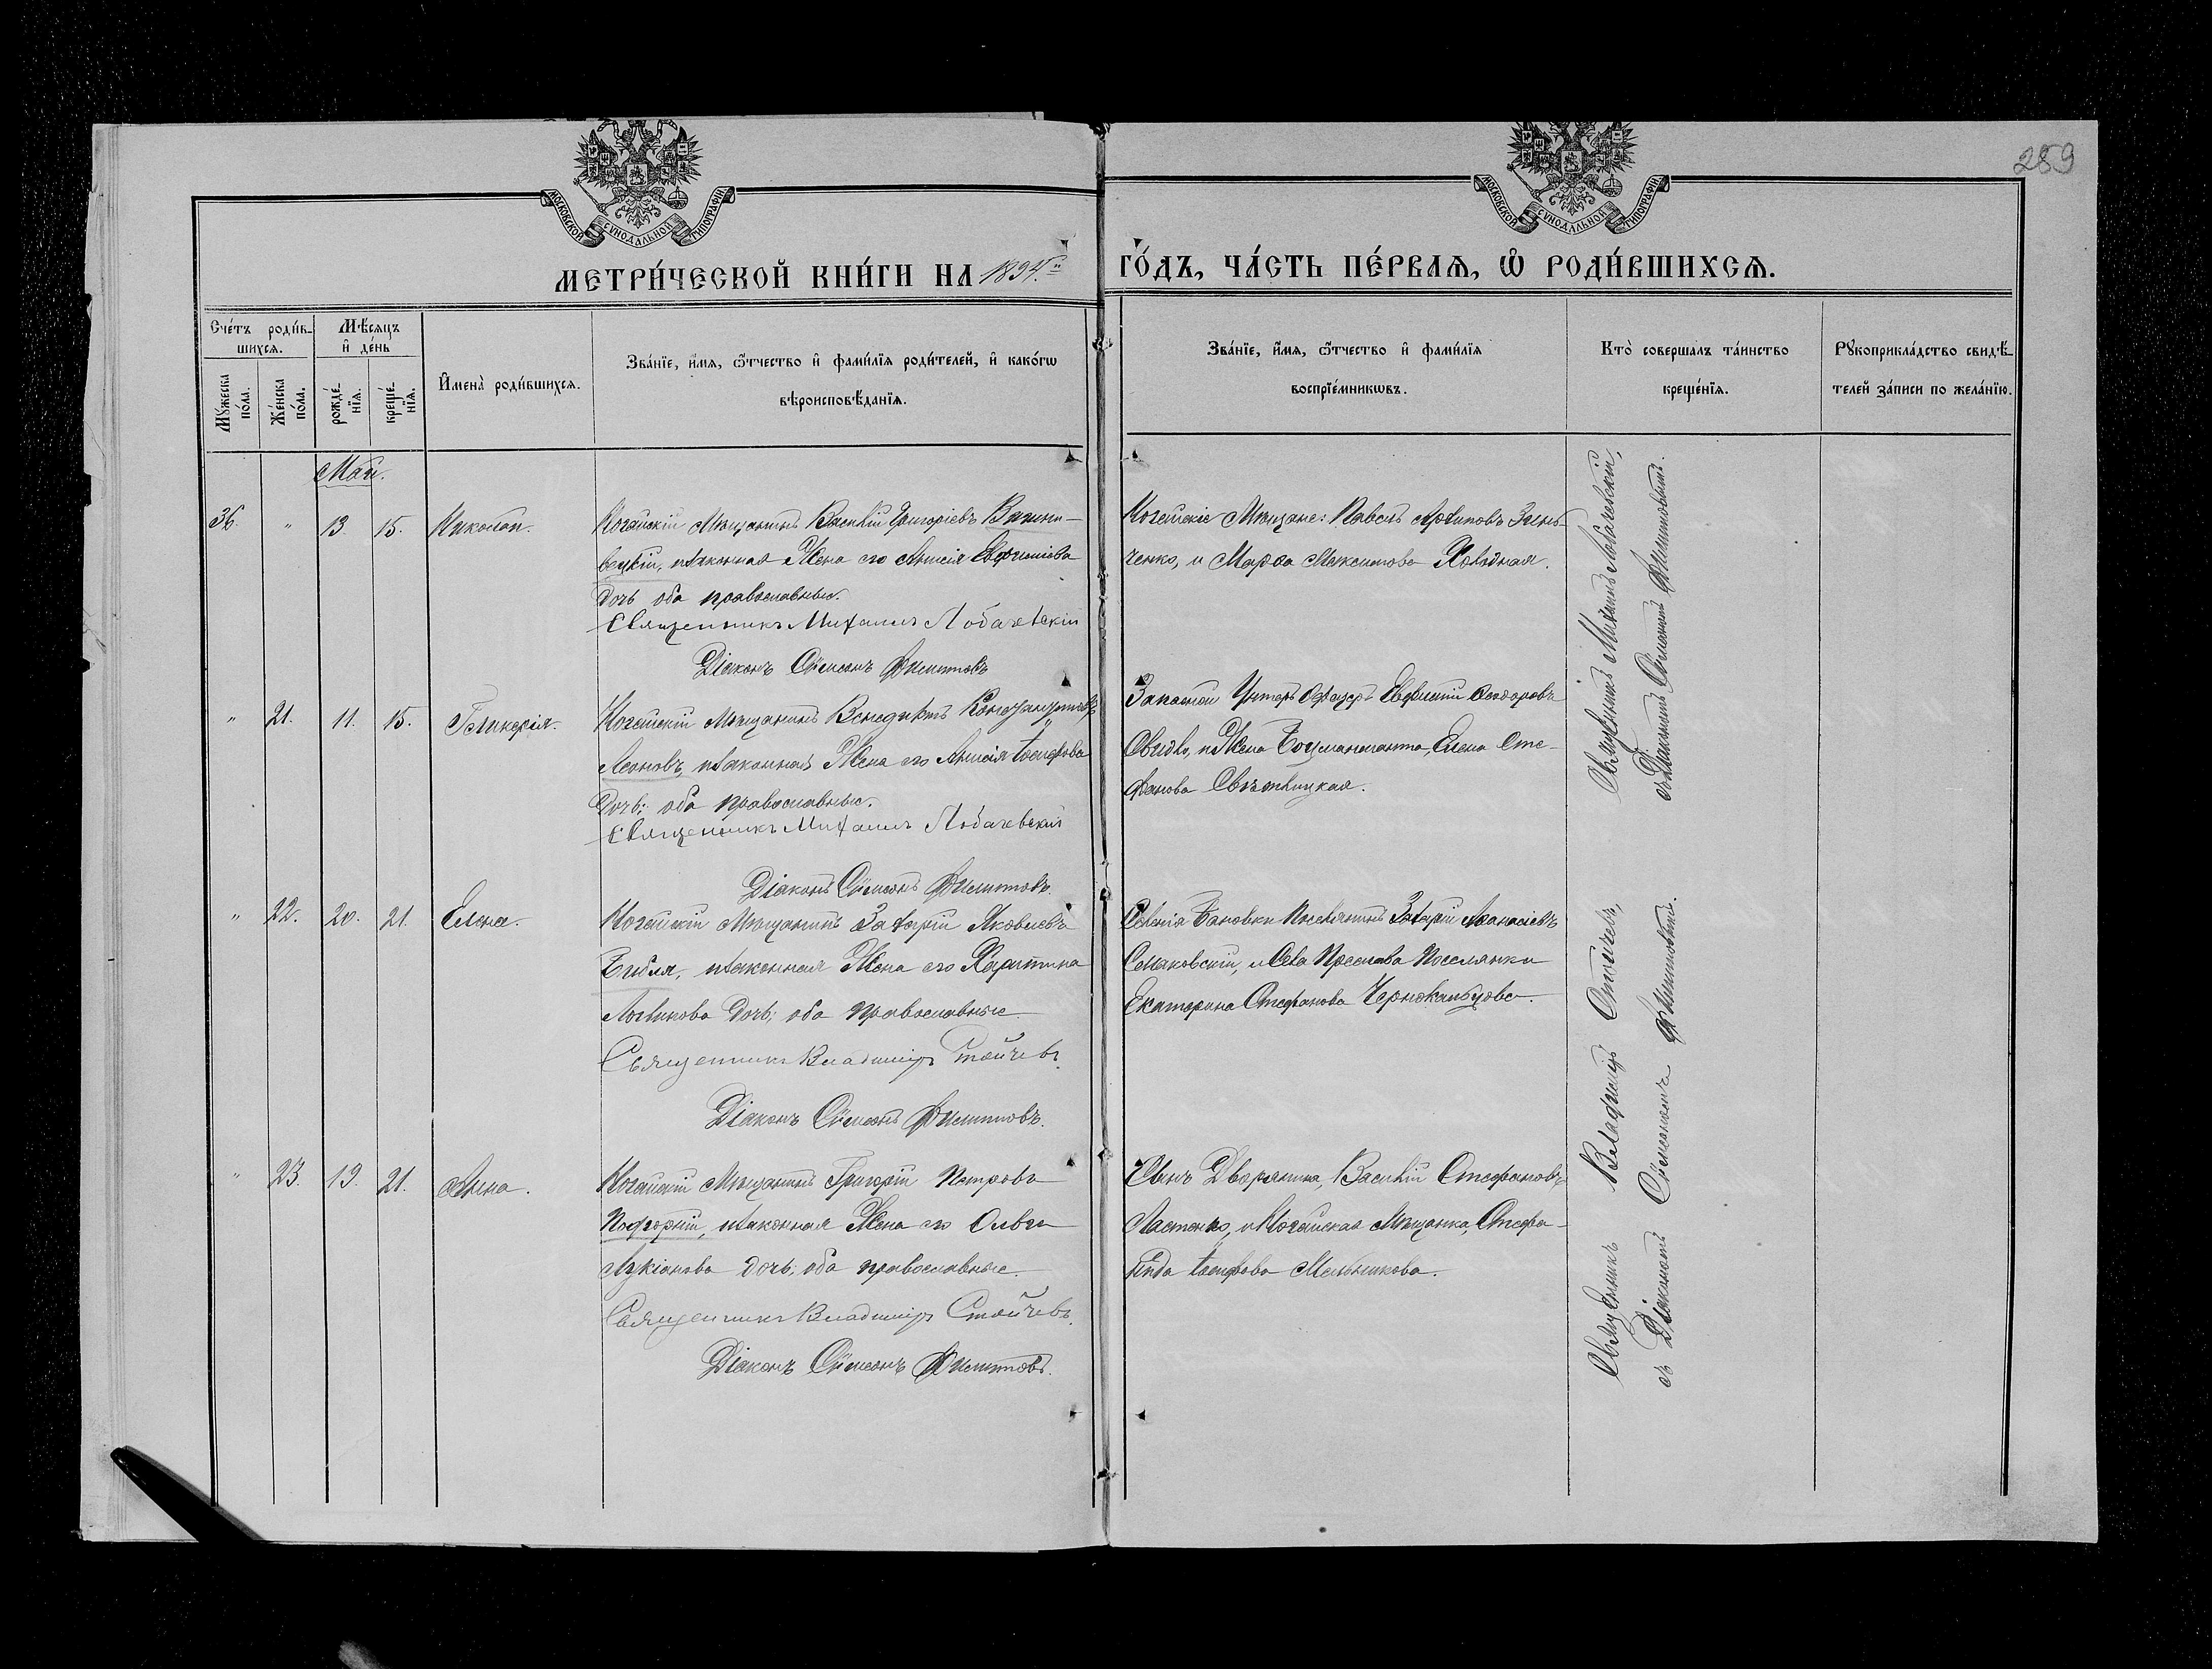 259
МОСКОВСКОЙ СѴНОДАЛЬНОЙ ТИПОГРАФІИ.
МОСКОВСКОЙ СѴНОДАЛЬНОЙ ТИПОГРАФІИ.
МЕТРИ́ЧЕСКОЙ КНИ́ГИ НА 1894й ГО́ДЪ, ЧА́СТЬ ПЕ́РВАѦ, Ѡ҆ РОДИ́ВШИХСѦ.
Сче́тъ роди́в-
шихсѧ.
Мꙋ́жеска по́ла.
Же́нска по́ла.
Мѣ́сѧцъ
и҆ де́нь
рожде́-
нїѧ.
креще́-
нїѧ.
И҆мена̀ роди́вшихсѧ.
Зва́нїе, и҆́мѧ, ѻ҆́тчество и҆ фами́лїѧ роди́телей, и҆ како́гѡ
вѣроисповѣ́данїѧ.
Зва́нїе, и҆́мѧ, ѻ҆́тчество и҆ фами́лїѧ
воспрїе́мникѡвъ.
Кто̀ соверша́лъ та́инство
креще́нїѧ.
Рꙋкоприкла́дство свидѣ́-
телей за́писи по жела́нїю.
Май.
36. " 13. 15. Николай.
Ногайскій Мѣщанинъ Василій Григоріевъ
и законная Жена его Анисія Евфиміова
дочь оба православные.
Священникъ Михаилъ Лобачевскій
Діаконъ Сѵмеонъ Филипповъ
Ногайскіе Мѣщане: Павелъ Архиповъ Зинь-
ченко, и Марѳа Максимова Холодная.
Священникъ Михаилъ Лобачевскій,
съ Діакономъ Сѵмеономъ Филипповымъ.
" 21. 11. 15. Гликерія.
Ногайскій Мѣщанинъ Венедиктъ Константиновъ
Леоновъ, и законная Жена его Анисія Іосифова
Дочь; оба православные.
Священникъ Михаилъ Лобачевскій
Діаконъ Сѵмеонъ Филипповъ.
Запасной Унтеръ Офицеръ Евфимій Ѳеодоровъ
и Жена Боцманманта, Елена Сте-
фанова
" 22. 20. 21. Елена.
Ногайскій Мѣщанинъ Захарій Яковлевъ
Библя, и законная Жена его Харитина
Логвинова Дочь; оба православные.
Священникъ Владиміръ Стойчевъ.
Діаконъ Сѵмеонъ Филипповъ.
Селенія Бановки Поселянинъ Захарій Аѳанасіевъ
Семаковскій, и Села Преслава Поселянка
Екатерина Стефанова
Священникъ Владиміръ Стойчевъ,
съ Діакономъ Сѵмеономъ Филипповымъ.
" 23. 19. 21. Анна.
Ногайскій Мѣщанинъ Григорій Петровъ
Подгорній, и законная Жена его Ольга
Лукіанова дочь; оба православные.
Священникъ Владиміръ Стойчевъ.
Діаконъ Сѵмеонъ Филипповъ.
Сынъ Дворянина, Василій Стефановъ
Ластенко, и Ногайская Мѣщанка, Стефа-
нида Іосифова Мельникова.